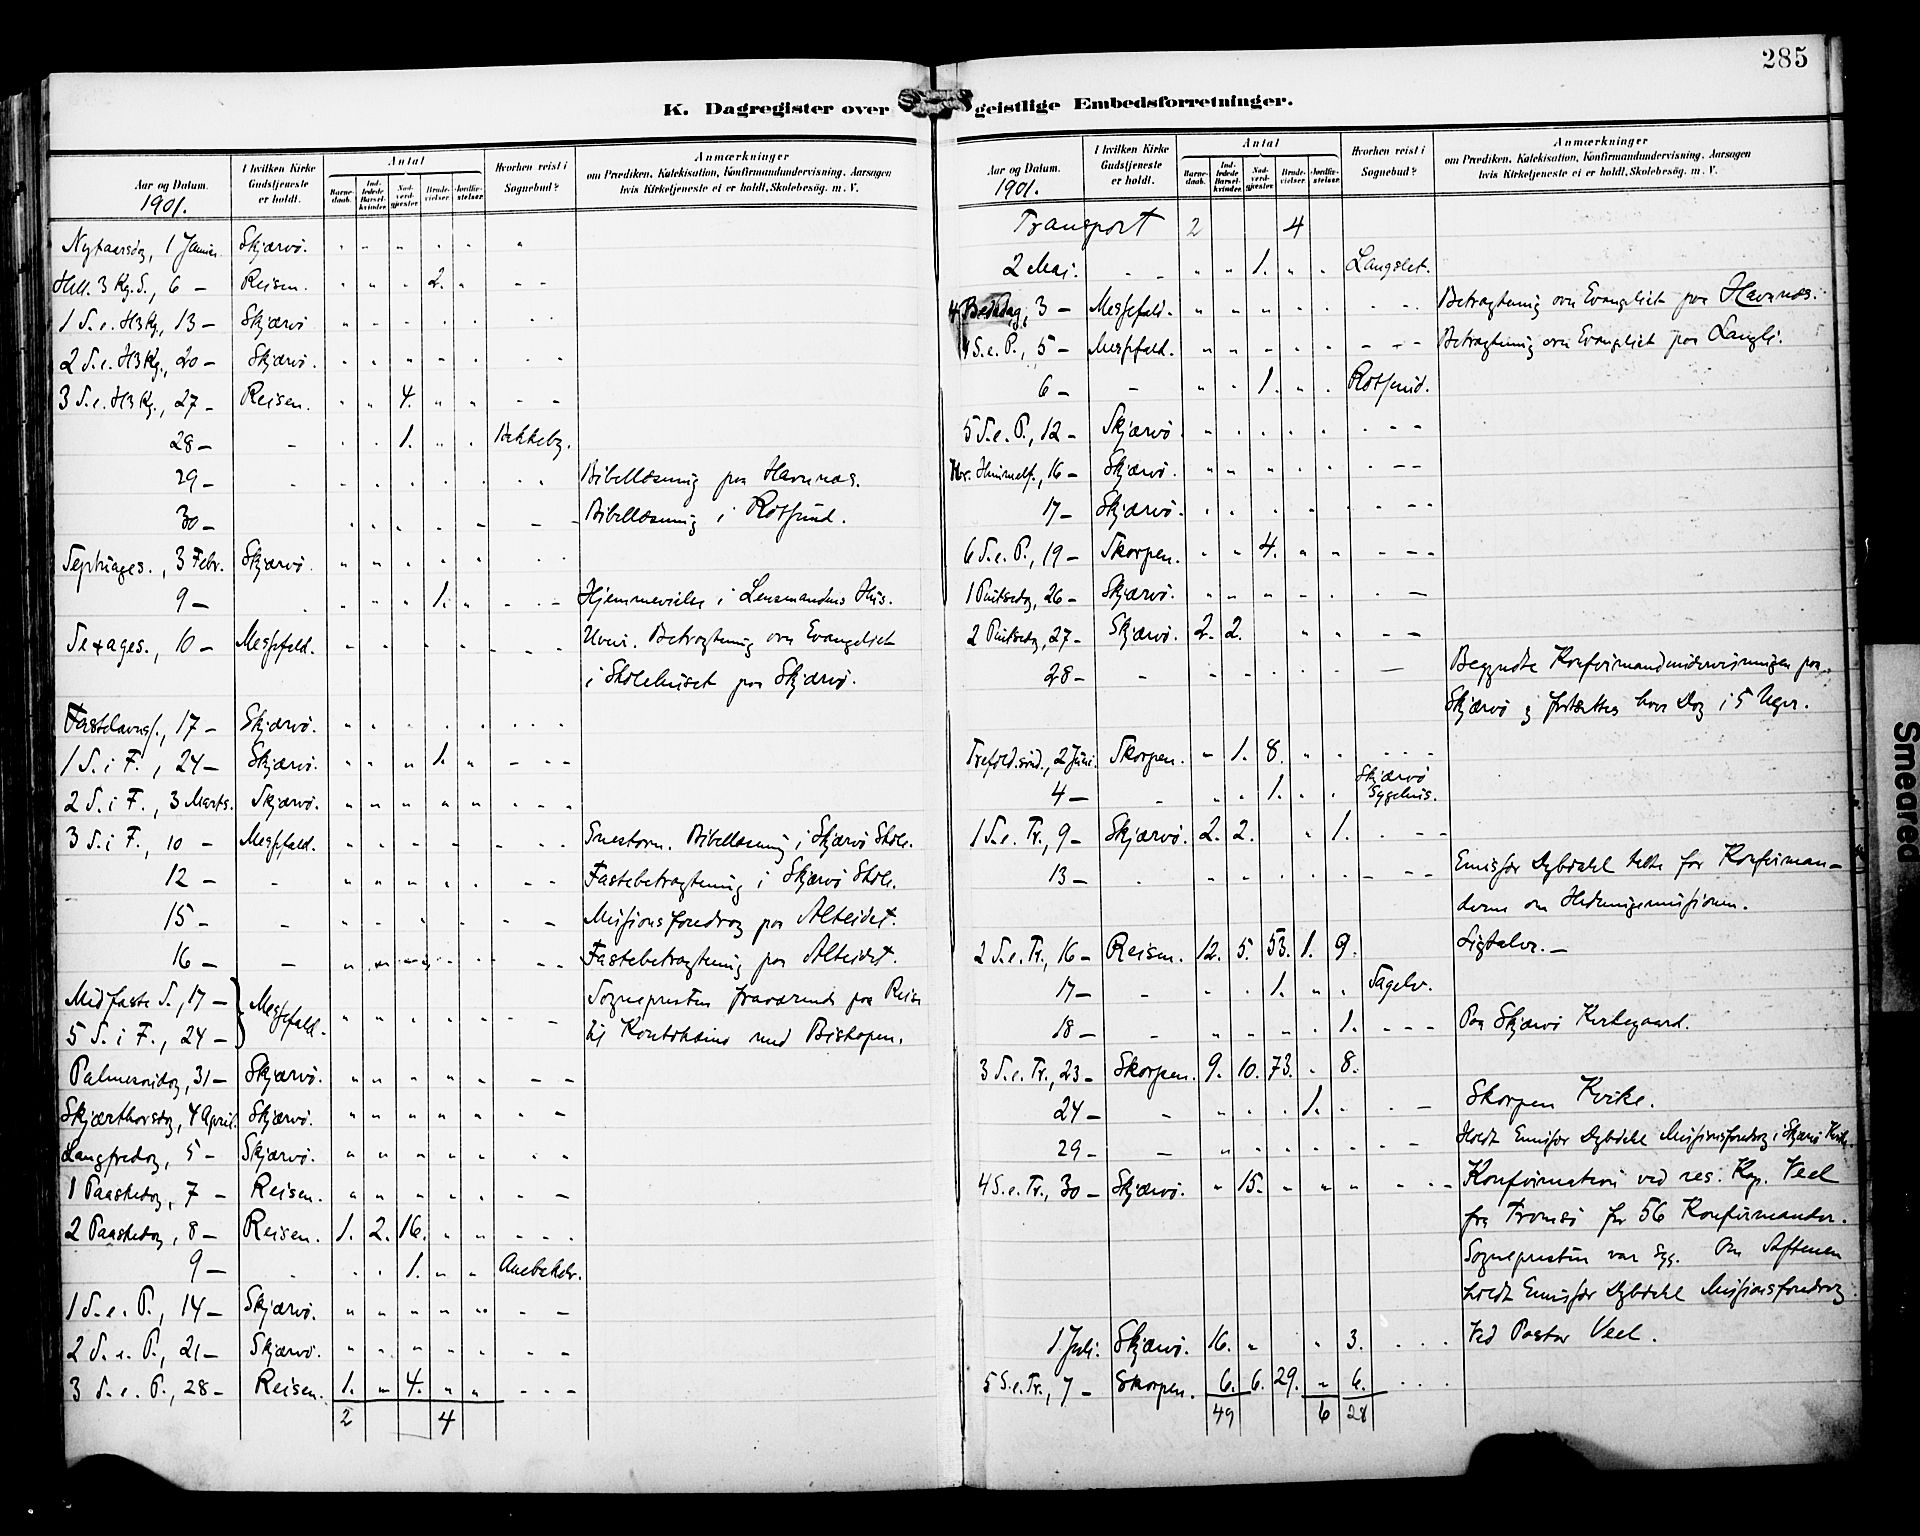 285
K. Dagregister over
geistlige Embedsforretninger.
Aar og Datum.
1901.
I hvilken Kirke Gudstjeneste er holdt.
Antal
Barnedaab.
Indledede Barselkvinder.
Nadverdgjester
Brudevielser
Jordfæstelser
Hvorhen reist i Sognebud?
Anmærkninger
om Prædiken, Katekisation, Konfirmandundervisning, Aarsagen
hvis Kirketjeneste ei er holdt, Skolebesøg. m. V.
Nytaarsdag, 1 Januar Skjærvö. " " " " " "
Hell. 3 Kg. S., 6 – Reisen. " " " 2. " – –
1 S. e. H3Kg., 13 – Skjærvö " " " " " " "
2 S. e. H3Kg., 20 – Skjærvö. " " " " " " "
3 S. e. H3Kg., 27 – Reisen. " " 4. " " – –
28 – – " " 1. " " Bekkeby.
29 – " " " " " " " Bibellæsning paa Havnnæs.
30 – " " " " – – – Bibellæsning i Rotsund.
Septuages., 3 Febr. Skjærvö. " " " " " " "
9 – " " " 1. " – – – Hjemmevielse i Lensmandens Hus.
Sexages., 10 – Messefald. " " " " " – – – Uveir. Betragtning over Evangeliet
i Skolehuset paa Skjærvö.
Fastelavnss., 17 – Skjærvö. " " " " " " "
1 S. i F., 24 – Skjærvö. " " " 1. " – – –
2 S. i F., 3 Marts. Skjærvö. " " " " " – – –
3 S. i F., 10 – Messefald. " " " " " – – – Snestorm. Bibellæsning i Skjærvö Skole.
12 – – " " " " " – – Fastebetragtning i Skjærvö Skole.
15 – – " " " " " – – Missionsforedrag paa Alteidet.
16 – – " " " " " – – Fastebetragtning paa Alteidet.
Midfaste S., 17 – } Messefald. Sognepresten fraværende paa Reise
5 S. i F., 24 – til Kautokeino med Biskopen.
Palmesöndag, 31 – Skjærvö. " " " " " – –
Skjærthorsdag, 4 April. Skjærvö. " " " " " – –
Langfredag, 5 – Skjærvö. " " " " " – –
1 Paaskedag, 7 – Reisen. " " " " " – –
2 Paaskedag, 8 – Reisen. 1. 2. 16. " " – – –
9 – " " " 1. " "
1 S. e. P., 14 – Skjærvö. " " " " " – –
2 S. e. P., 21 – Skjærvö. " " " " " – –
3 S. e. P., 28 – Reisen. 1. " 4. " " – – –
2 4
Aar og Datum.
1901.
I hvilken Kirke Gudstjeneste er holdt.
Antal
Barnedaab.
Indledede Barselkvinder.
Nadverdgjester
Brudevielser
Jordfæstelser
Hvorhen reist i Sognebud?
Anmærkninger
om Prædiken, Katekisation, Konfirmandundervisning, Aarsagen
hvis Kirketjeneste ei er holdt, Skolebesøg. m. V.
Transport 2 4
2 Mai. – – " " 1. " " Langslet.
4 Bededag, 3 – Messefald. " " " " " – – Betragtning over Evangeliet paa Havnnæs.
4 S. e. P., 5 – Messefald. " " " " " – – – Betragtning over Evangeliet paa
6 – – " " 1. " " Rotsund.
5 S. e. P., 12 – Skjærvö. " " " " " – – –
Kr. Himmelf., 16 – Skjærvö. " " " " " – – –
17 – Skjærvö. " " " " " – – –
6 S. e. P., 19 – Skorpen. " " 4. " " – – –
1 Pintsedag, 26 – Skjærvö. " " " " " – –
2 Pintsedag, 27 – Skjærvö. 2. 2. " " – –
28 – – " " " " " – Begyndte Konfirmandundervisningen paa
Skjærvö og fortsattes hver Dag i 5 Uger.
Trefold.sönd., 2 Juni. Skorpen. " 1. 8. " " – – –
4 – – " " 1. " " Skjærvö Sygehus.
1 S. e. Tr., 9 – Skjærvö. 2. 2. " 1. – – –
13 – " " " " " – – – Emissær Dybdahl talte for Konfirman–
derne om Hedningemissionen.
2 S. e. Tr., 16 – Reisen. 12. 5. 53. 1. 9. Ligtaler. –
17 – – " " 1. " " Sagelv.
18 – – " " " " 1. – – – Paa Skjærvö Kirkegaard.
3 S. e. Tr., 23 – Skorpen. 9. 10. 73. " 8.
24 – – " " " 1. " " – Skorpen Kirke.
29 – – " " " " " – – Holdt Emissær Dybdahl Missionsforedrag i Skjærvö Kirke.
4 S. e. Tr., 30 – Skjærvö. " 15. " " " – – – Konfirmation ved res. Kap. Veel
fra Tromsö for 56 Konfirmander.
Sognepresten var syg. Om Aftenen
holdt Emissær Dybdahl Missionsforedrag.
1 Juli. Skjærvö. 16. " " 3. – – – Ved Pastor Veel.
5 S. e. Tr., 7 – Skorpen. 6. 6. 29. " 6. – – –
49 6 28
Smeared